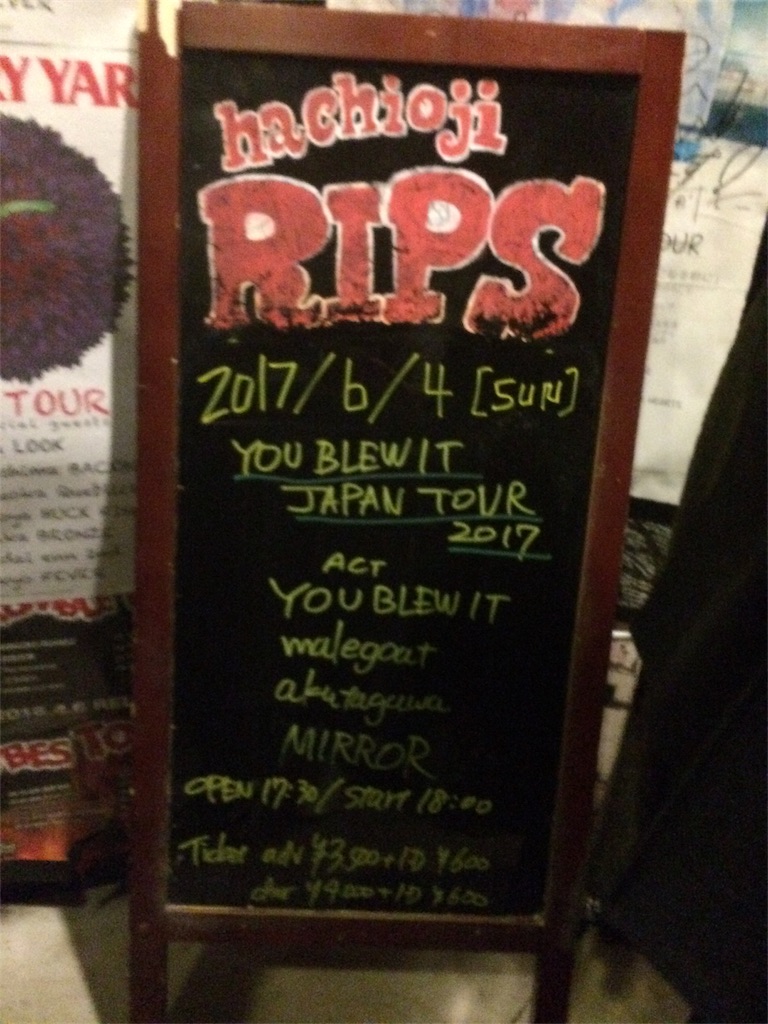 hachioji
RIPS
2017/6/4 [SUN]
YOU BLEW IT
JAPAN TOUR
2017
ACT
YOU BLEW IT
malegoat
akutagawa
MIRROR
OPEN 17:30/START 18:00
Ticket adv ¥3,500+1D ¥600
door ¥4,000+1D ¥600
Y YAR
TOUR
LOOK
BES TO
OUR